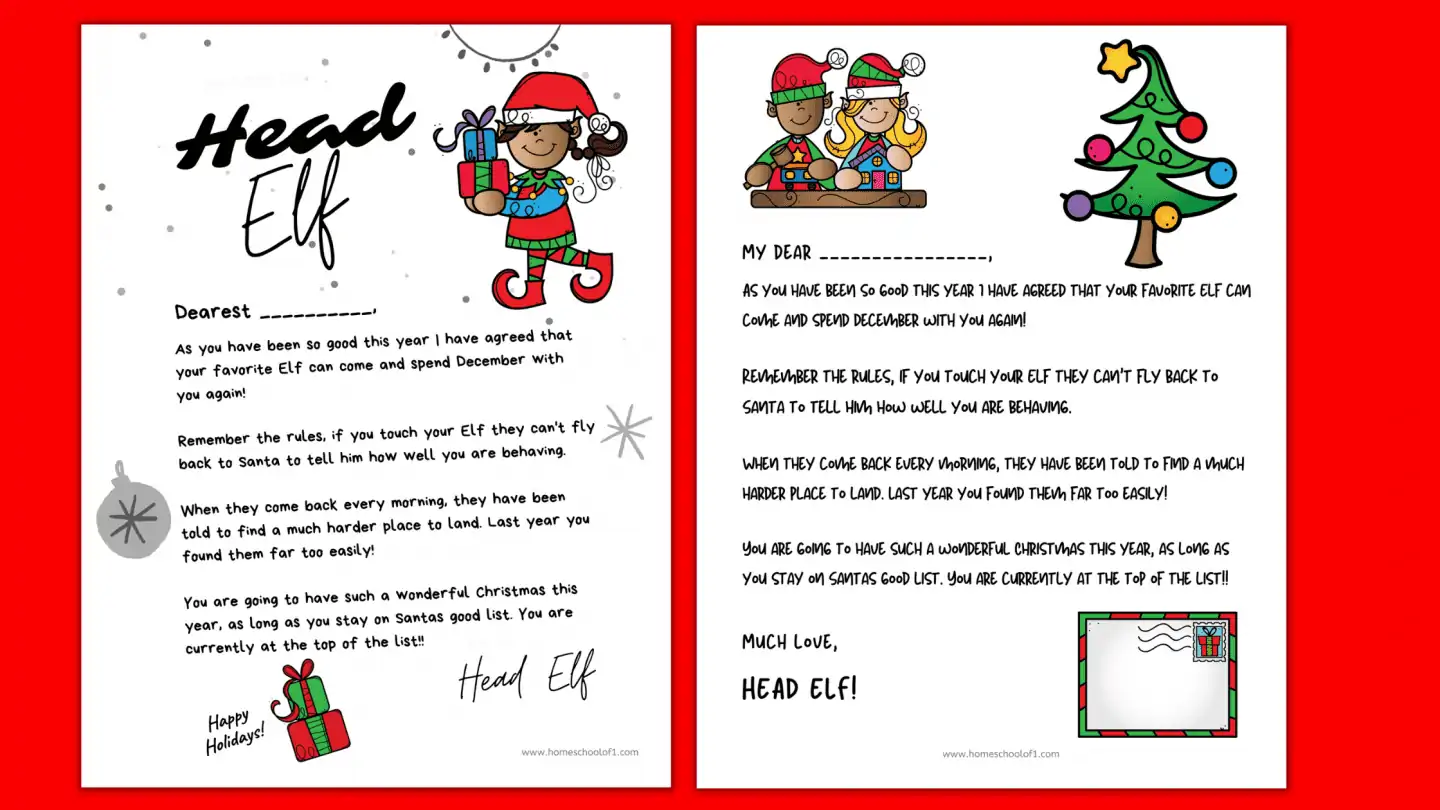 Head
Elf
Dearest __________,
As you have been so good this year I have agreed that
your favorite Elf can come and spend December with
you again!
Remember the rules, if you touch your Elf they can't fly
back to Santa to tell him how well you are behaving.
When they come back every morning, they have been
told to find a much harder place to land. Last year you
found them far too easily!
You are going to have such a wonderful Christmas this
year, as long as you stay on Santas good list. You are
currently at the top of the list!!
Head Elf
Happy
Holidays!
www.homeschoolof1.com
MY DEAR ________________,
AS YOU HAVE BEEN SO GOOD THIS YEAR I HAVE AGREED THAT YOUR FAVORITE ELF CAN
COME AND SPEND DECEMBER WITH YOU AGAIN!
REMEMBER THE RULES, IF YOU TOUCH YOUR ELF THEY CAN'T FLY BACK TO
SANTA TO TELL HIM HOW WELL YOU ARE BEHAVING.
WHEN THEY COME BACK EVERY MORNING, THEY HAVE BEEN TOLD TO FIND A MUCH
HARDER PLACE TO LAND. LAST YEAR YOU FOUND THEM FAR TOO EASILY!
YOU ARE GOING TO HAVE SUCH A WONDERFUL CHRISTMAS THIS YEAR, AS LONG AS
YOU STAY ON SANTAS GOOD LIST. YOU ARE CURRENTLY AT THE TOP OF THE LIST!!
MUCH LOVE,
HEAD ELF!
www.homeschoolof1.com